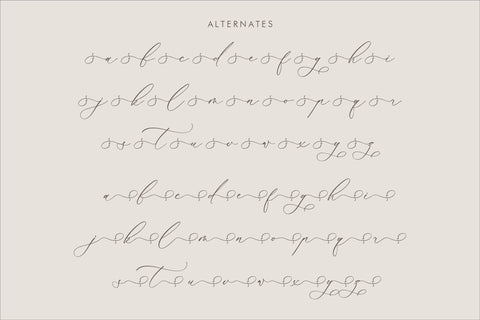 ALTERNATES
a b c d e f g h i
j k l m n o p q r
s t u v w x y z
a b c d e f g h i
j k l m n o p q r
s t u v w x y z